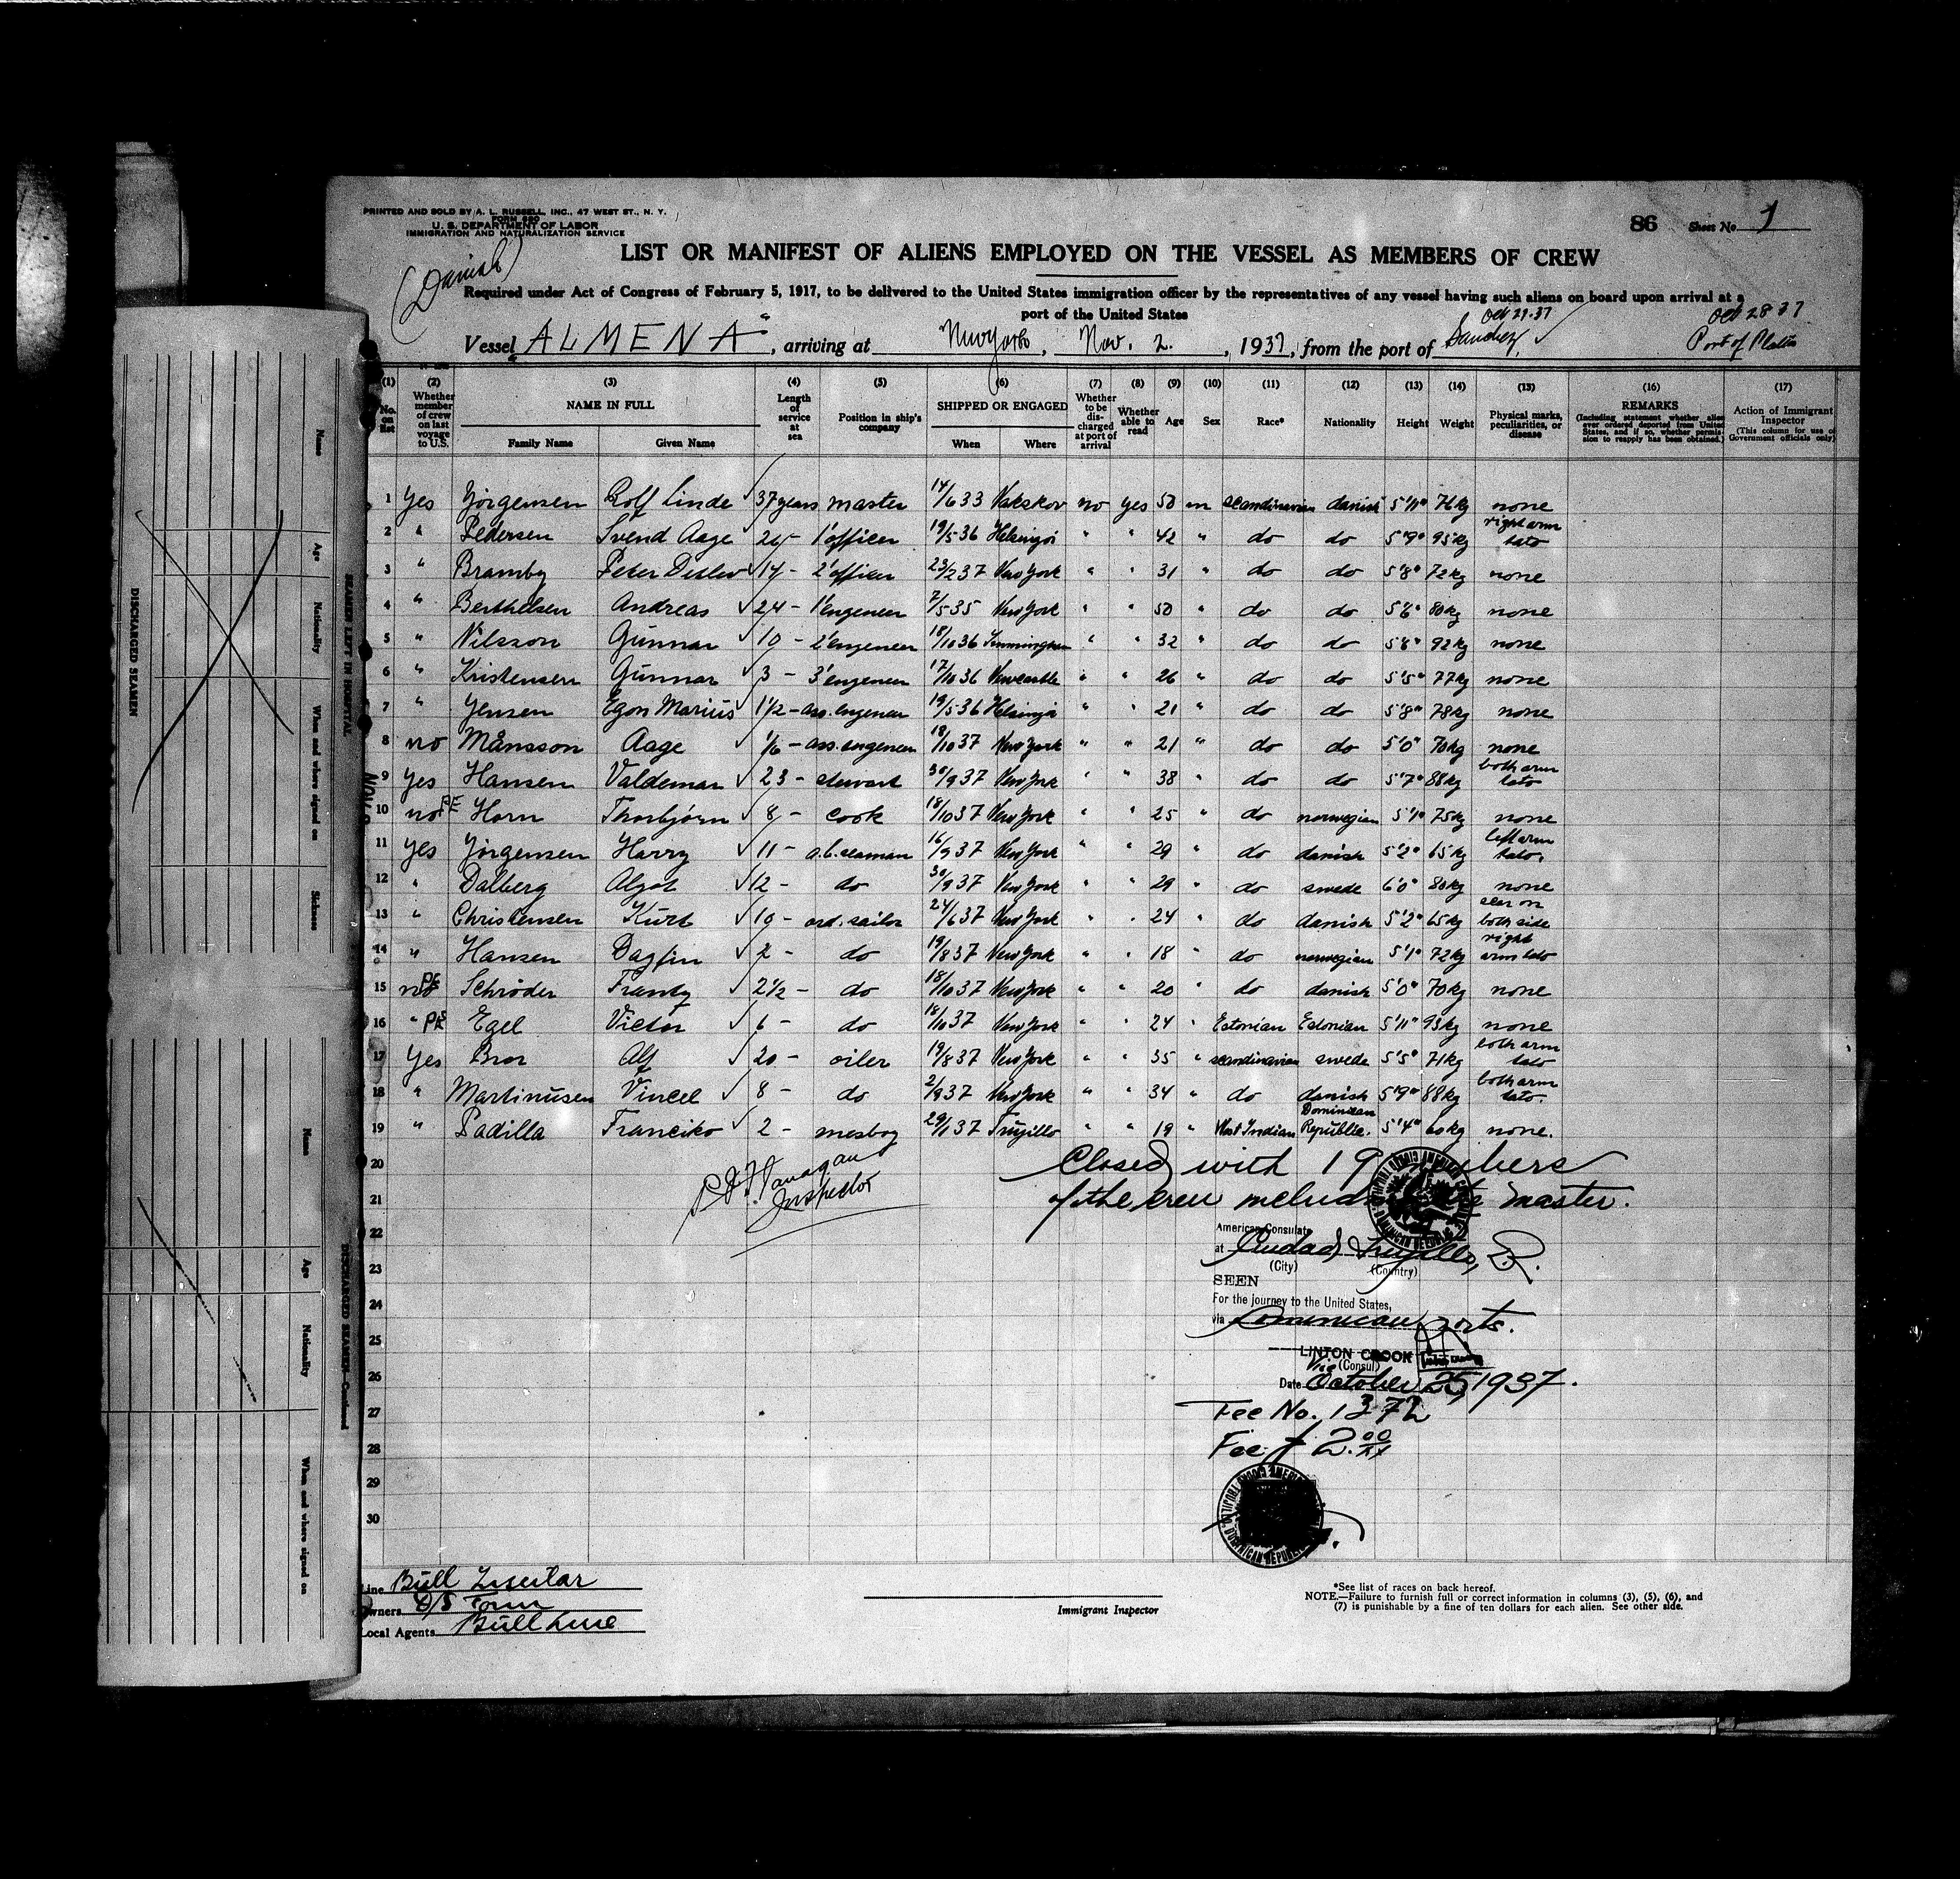 PRINTED AND SOLD BY A. L. RUSSELL, INC., 47 WEST ST., N. Y.
FORM 680
U. S. DEPARTMENT OF LABOR
IMMIGRATION AND NATURALIZATION SERVICE
86 Sheet No 1
(Danish)
LIST OR MANIFEST OF ALIENS EMPLOYED ON THE VESSEL AS MEMBERS OF CREW
Required under Act of Congress of February 5, 1917, to be delivered to the United States immigration officer by the representatives of any vessel having such aliens on board upon arrival at a
port of the United States
Oct 29-37 Oct 28 37
Vessel "ALMENA", arriving at New York, Nov. 2., 1937, from the port of Sanchez, Port of Platta
(1) (2) (3) (4) (5) (6) (7) (8) (9) (10) (11) (12) (13) (14) (15) (16) (17)
No. on list
Whether member of crew on last voyage to U.S.
NAME IN FULL
Family Name Given Name
Length of service at sea
Position in ship's company
SHIPPED OR ENGAGED
When Where
Whether to be discharged at port of arrival
Whether able to read
Age
Sex
Race*
Nationality
Height
Weight
Physical marks, peculiarities, or disease
REMARKS
(Including statement whether alien ever ordered deported from United States, and if so, whether permission to reapply has been obtained.)
Action of Immigrant Inspector
(This column for use of Government officials only)
1 Yes Jörgensen Rolf Linde 37 years master 14/6 33 Nakskov no yes 50 m scandinavian danish 5'11" 76kg none
2 " Pedersen Svend Aage 26 - 1' officer 19/5-36 Helsingör " " 42 " do do 5'9" 95kg right arm tato
3 " Bramby Peter Detlev 14 - 2' officer 23/2 37 New York " " 31 " do do 5'8" 72kg none
4 " Berthelsen Andreas 24 - 1' engeneer 7/5-35 New York " " 50 " do do 5'6" 80kg none
5 " Nilsson Gunnar 10 - 2' engeneer 18/10 36 " " 32 " do do 5'8" 92kg none
6 " Kristensen Gunnar 3 - 3' engeneer 17/10 36 Newcastle " " 26 " do do 5'5" 77kg none
7 " Jensen Egon Marius 1½ - ass. engeneer 19/5-36 Helsingör " " 21 " do do 5'8" 78kg none
8 no Månsson Aage 1/6 - ass. engeneer 18/10 37 New York " " 21 " do do 5'0" 70kg none
9 Yes Hansen Valdemar 23 - stewart 30/9 37 New York " " 38 " do do 5'7" 88kg both arm tato
10 no PE Horn Thorbjörn 8 - cook 18/10 37 New York " " 25 " do norwegian 5'1" 75kg none
11 Yes Jörgensen Harry 11 - a.b. seaman 16/9 37 New York " " 29 " do danish 5'2" 65kg left arm tato.
12 " Dalberg Algot 12 - do 30/9 37 New York " " 29 " do swede 6'0" 80kg none
13 " Christensen Kurt 10 - ord. sailor 24/6 37 New York " " 24 " do danish 5'2" 65kg scar on both side
14 " Hansen Dagfin 2 - do 19/8 37 New York " " 18 " do norwegian 5'1" 72kg right arm tato
15 no PE Schröder Frantz 2½ - do 18/10 37 New York " " 20 " do danish 5'0" 70kg none
16 " PE Egel Victor 6 - do 18/10 37 New York " " 24 " Estonian Estonian 5'11" 93kg none
17 Yes Bror Alf 20 - oiler 19/8 37 New York " " 35 " scandinavian swede 5'5" 71kg both arm tato
18 " Martinusen Vincel 8 - do 2/9 37 New York " " 34 " do danish 5'9" 88kg both arm tato.
19 " Padilla Franciko 2 - messboy 29/1 37 Trujillo " " 19 " West Indian Dominican Republic. 5'4" 60kg none.
20
21
22
23
24
25
26
27
28
29
30
Inspector
Closed with 19 members
of the crew including the master.
American Consulate
at Ciudad Trujillo, D.R.
(City) (Country)
SEEN
For the journey to the United States,
via Dominican ports.
LINTON CROOK
Vice (Consul)
Date October 25, 1937.
Fee No. 1372
Fee $ 2.00
Line Bull Insular
Owners D/S Torm
Local Agents Bull Line
Immigrant Inspector
*See list of races on back hereof.
NOTE.—Failure to furnish full or correct information in columns (3), (5), (6), and
(7) is punishable by a fine of ten dollars for each alien. See other side.
DISCHARGED SEAMEN
SEAMEN LEFT IN HOSPITAL
Name Age Nationality When and where signed on Sickness
DISCHARGED SEAMEN—Continued
Name Age Nationality When and where signed on